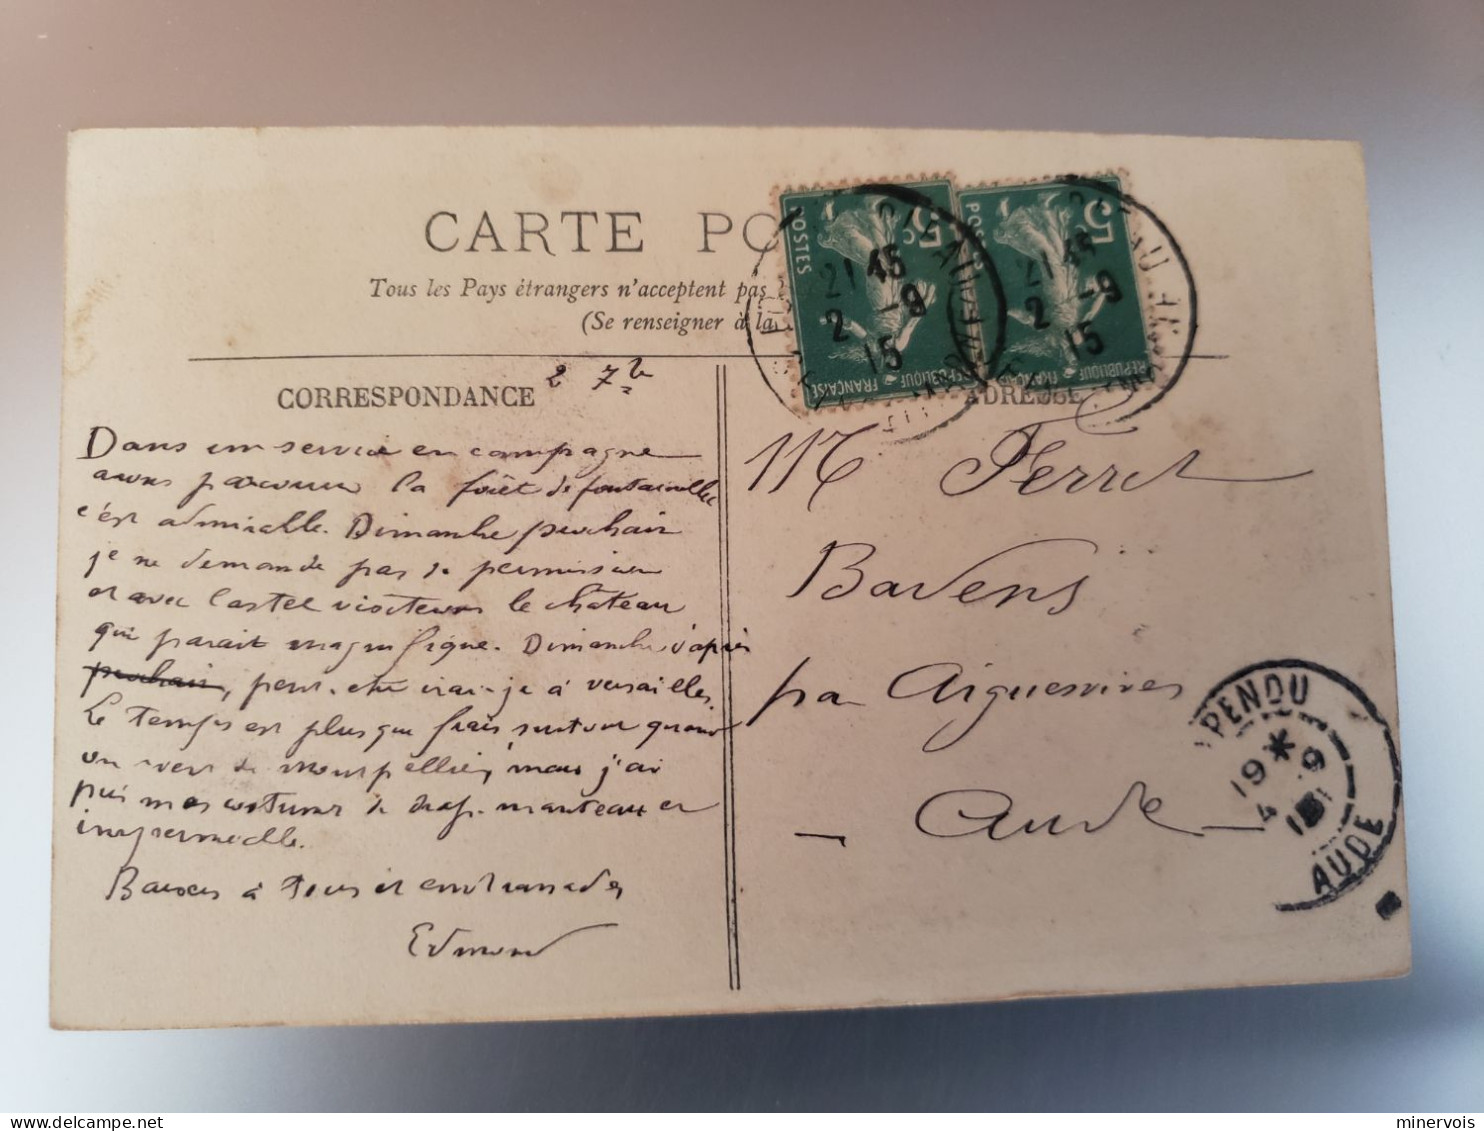 CARTE PO
Tous les Pays étrangers n'acceptent pas
(Se renseigner à la
CORRESPONDANCE
2 7bre
ADRESSE
POSTES
5 c
RÉPUBLIQUE FRANÇAISE
POSTES
5
RÉPUBLIQUE FRANÇAISE
21 15
2 -9
15
21 15
2 -9
15
Dans un service en campagne
avons parcouru la forêt de fontainebleau
c'est admirable. Dimanche prochain
je ne demande pas de permission
et avec Castel visiterons le château
qui parait magnifique. Dimanche d'après
prochain, peut-etre irai-je à Versailles.
Le temps est plus que frais surtout quand
on vient de Montpellier, mais j'ai
pris mes costumes de drap. manteau et
imperméable.
Baisers à tous et embrassades
Edmond
Mr Ferret
Badens
par Aiguesvives
- Aude -
PENDU
19 *
4 -9
15
AUDE
minervois